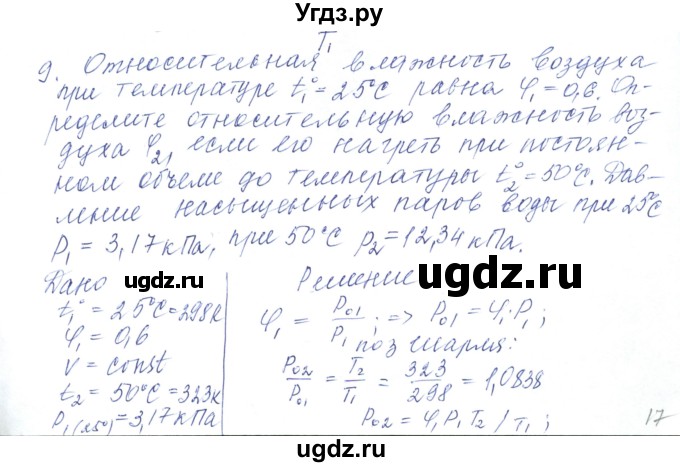 Угдз.ру
T₁
9. Относительная влажность воздуха
при температуре t₁° = 25°C равна φ₁ = 0,6. Оп-
ределите относительную влажность воз-
духа φ₂, если его нагреть при постоян-
ном объеме до температуры t₂° = 50°C. Дав-
ление насыщенных паров воды при 25°C
P₁ = 3,17 кПа, при 50°C P₂ = 12,34 кПа.
ugdz.ru
ugdz.ru
Дано
t₁° = 25°C = 298к
φ₁ = 0,6
V = const
t₂ = 50°C = 323к
P₁(25°) = 3,17 кПа
Решение
φ₁ = P₀₁/P₁; => P₀₁ = φ₁·P₁;
по з Шарля:
P₀₂/P₀₁ = T₂/T₁ = 323/298 = 1,0838
P₀₂ = φ₁P₁T₂/T₁;
17
ugdz.ru
ugdz.ru
ugdz.ru